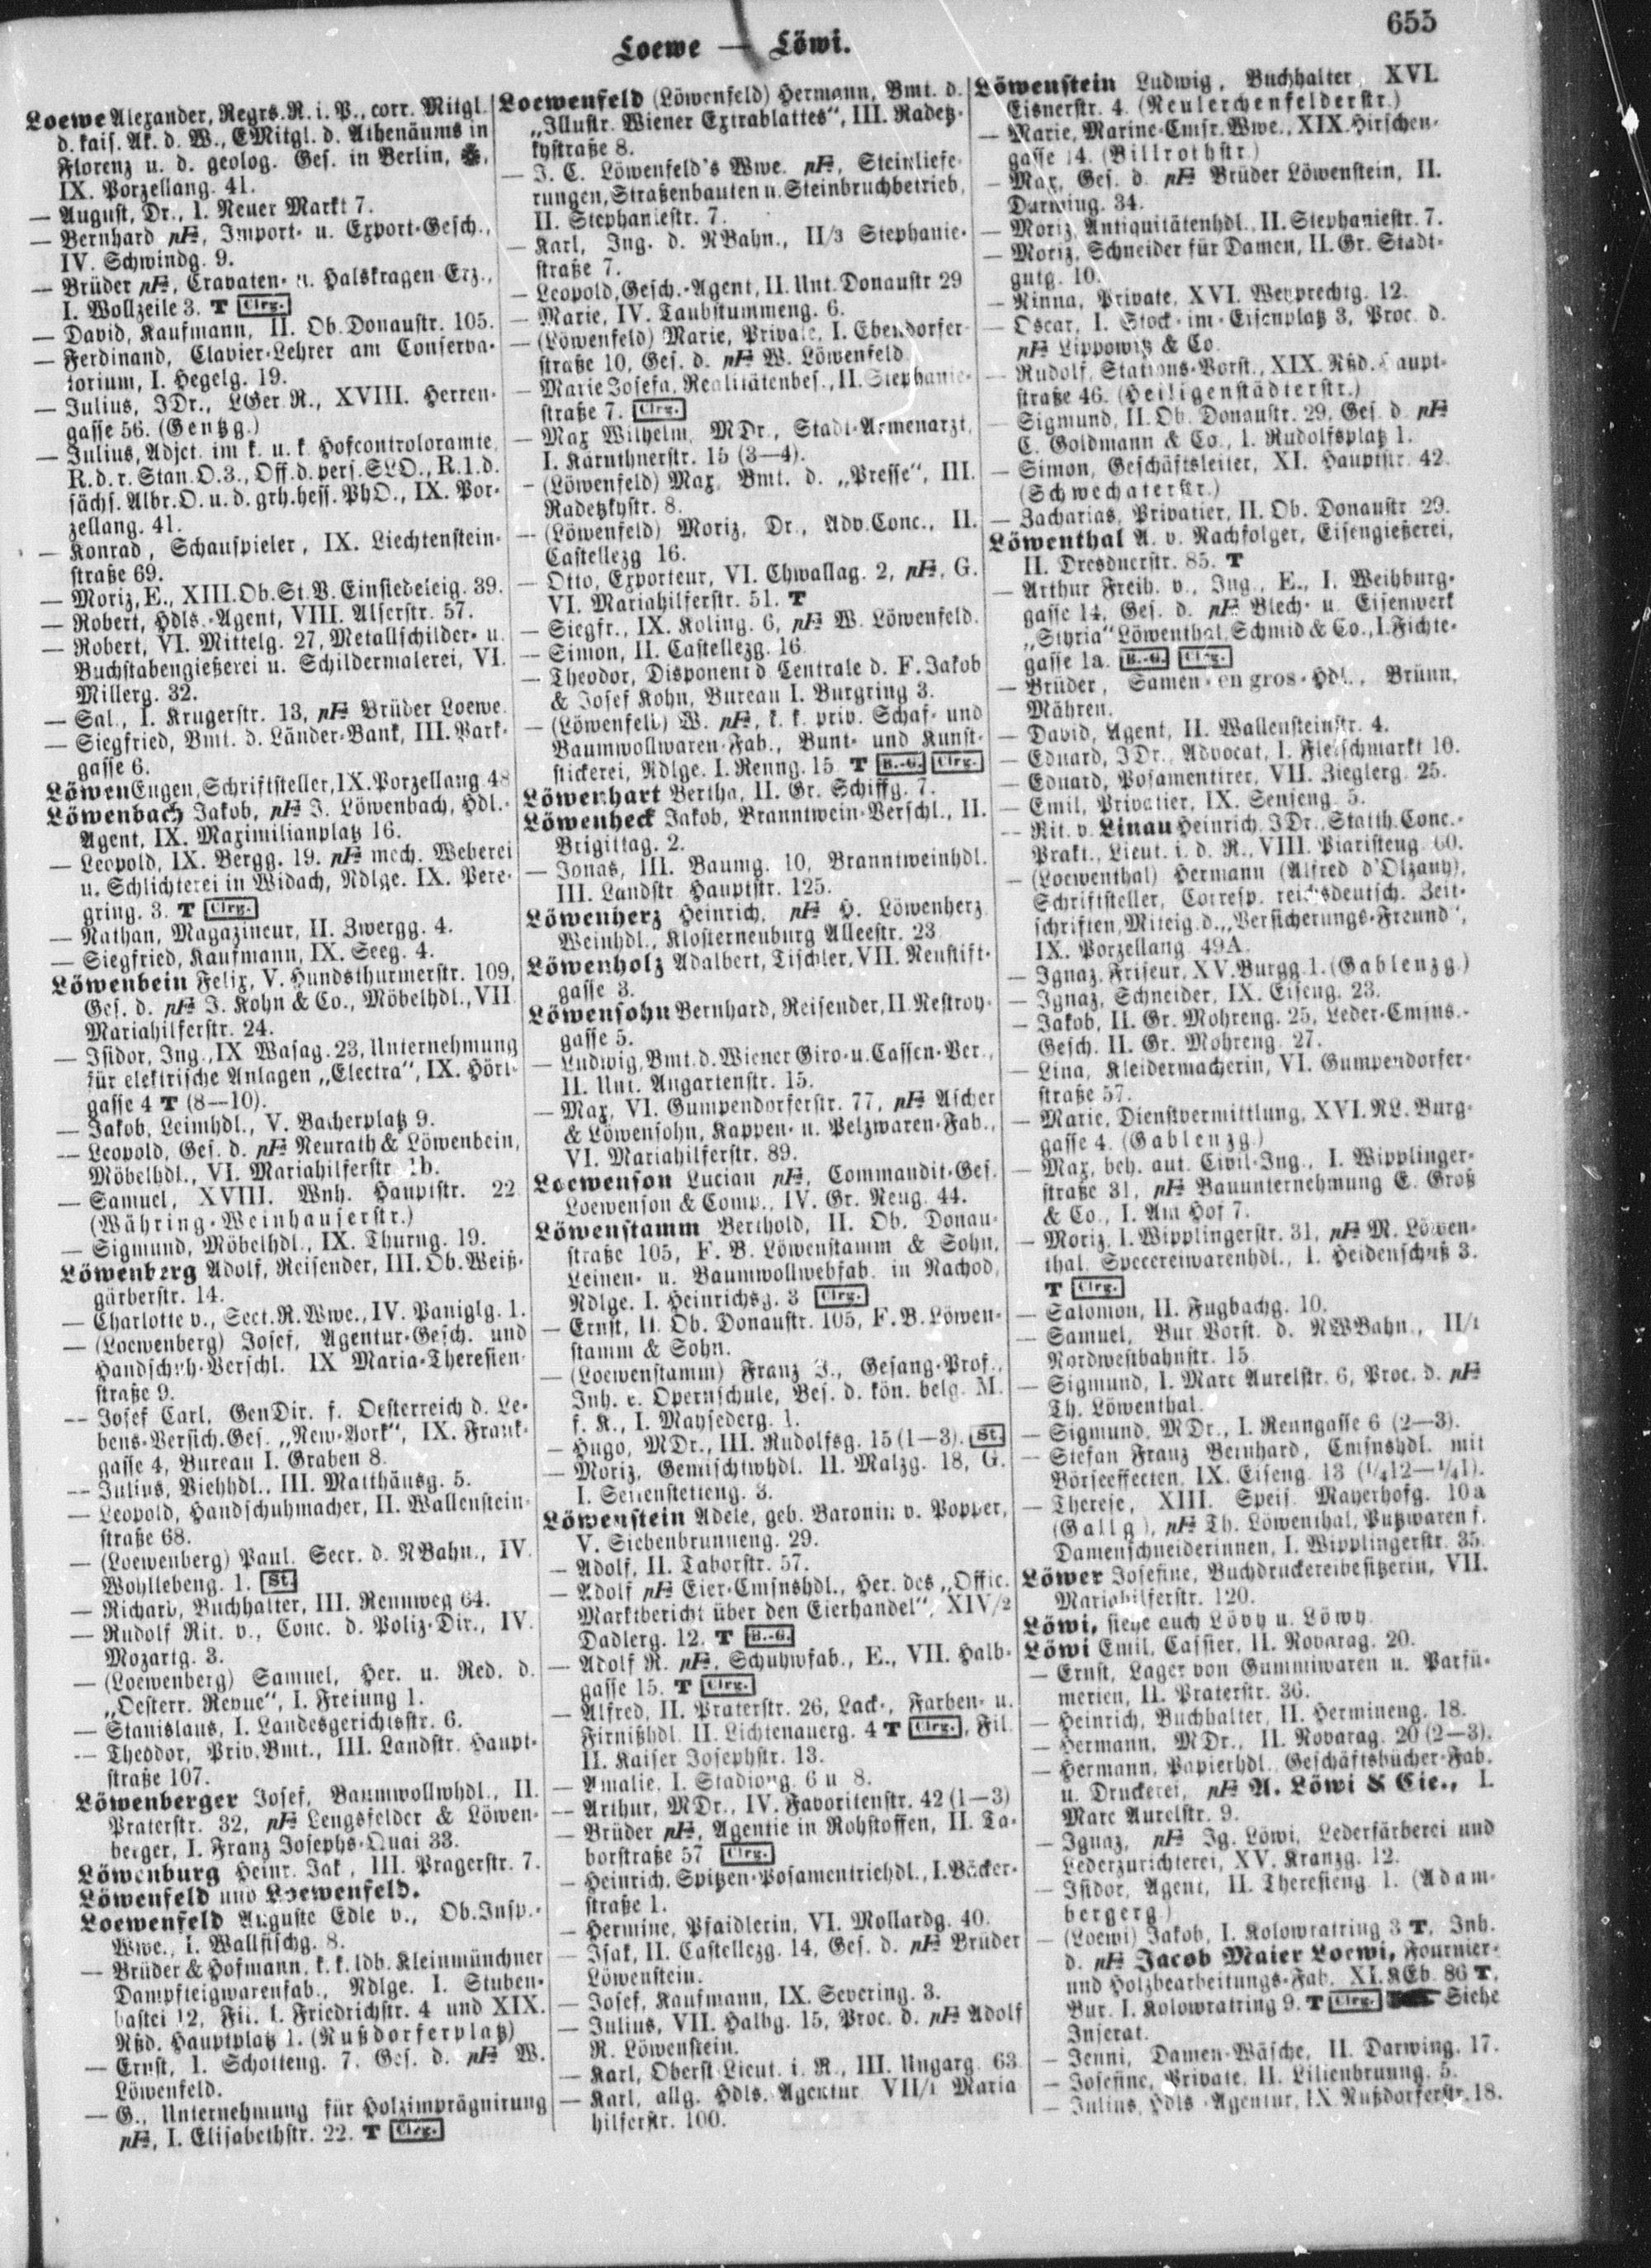 655
Loewe — Löwi.
Loewe Alexander, Regrs.R. i. P., corr. Mitgl.
d. kais. Ak. d. W., EMitgl. d. Athenäums in
Florenz u. d. geolog. Ges. in Berlin,
IX. Porzellang. 41.
— August, Dr., I. Neuer Markt 7.
— Bernhard pF, Import- u. Export-Gesch.,
IV. Schwindg. 9.
— Brüder pF, Cravaten- u. Halskragen Erz.,
I. Wollzeile 3. T Clrg.
— David, Kaufmann, II. Ob. Donaustr. 105.
— Ferdinand, Clavier-Lehrer am Conserva-
torium, I. Hegelg. 19.
— Julius, JDr., LGer.R., XVIII. Herren-
gasse 56. (Gentzg.)
— Julius, Adjct. im k. u. k. Hofcontroloramte,
R. d. r. Stan.O.3., Off. d. pers. SLO., R.1.d.
sächs. Albr.O. u. d. grh. hess. PhO., IX. Por-
zellang. 41.
— Konrad, Schauspieler, IX. Liechtenstein-
straße 69.
— Moriz, E., XIII. Ob.St.V. Einsiedeleig. 39.
— Robert, Hdls.-Agent, VIII. Alserstr. 57.
— Robert, VI. Mittelg. 27, Metallschilder- u.
Buchstabengießerei u. Schildermalerei, VI.
Millerg. 32.
— Sal., I. Krugerstr. 13, pF Brüder Loewe.
— Siegfried, Bmt. d. Länder-Bank, III. Park-
gasse 6.
Löwen Eugen, Schriftsteller, IX. Porzellang 48
Löwenbach Jakob, pF J. Löwenbach, Hdl.-
Agent, IX. Maximilianplatz 16.
— Leopold, IX. Bergg. 19. pF mech. Weberei
u. Schlichterei in Widach, Ndlge. IX. Pere-
gring. 3. T Clrg.
— Nathan, Magazineur, II. Zwergg. 4.
— Siegfried, Kaufmann, IX. Seeg. 4.
Löwenbein Felix, V. Hundsthurmerstr. 109,
Ges. d. pF J. Kohn & Co., Möbelhdl., VII
Mariahilferstr. 24.
— Isidor, Ing., IX Wasag. 23, Unternehmung
für elektrische Anlagen „Electra“, IX. Hörl-
gasse 4 T (8—10).
— Jakob, Leimhdl., V. Bacherplatz 9.
— Leopold, Ges. d. pF Neurath & Löwenbein,
Möbelhdl., VI. Mariahilferstr. 1b.
— Samuel, XVIII. Wnh. Hauptstr. 22
(Währing-Weinhauserstr.)
— Sigmund, Möbelhdl., IX. Thurng. 19.
Löwenberg Adolf, Reisender, III. Ob. Weiß-
gärberstr. 14.
— Charlotte v., Sect.R.Wwe., IV. Paniglg. 1.
— (Loewenberg) Josef, Agentur-Gesch. und
Handschuh-Verschl. IX Maria-Theresien-
straße 9.
— Josef Carl, GenDir. f. Oesterreich d. Le-
bens-Versich.Ges. „New-York“, IX. Frank-
gasse 4, Bureau I. Graben 8.
— Julius, Viehhdl., III. Matthäusg. 5.
— Leopold, Handschuhmacher, II. Wallenstein-
straße 68.
— (Loewenberg) Paul, Secr. d. NBahn., IV.
Wohllebeng. 1. St.
— Richard, Buchhalter, III. Rennweg 64.
— Rudolf Rit. v., Conc. d. Poliz-Dir., IV.
Mozartg. 3.
— (Loewenberg) Samuel, Her. u. Red. d.
„Oesterr. Revue“, I. Freiung 1.
— Stanislaus, I. Landesgerichtsstr. 6.
— Theodor, Priv.Bmt., III. Landstr. Haupt-
straße 107.
Löwenberger Josef, Baumwollwhdl., II.
Praterstr. 32, pF Lengsfelder & Löwen-
berger, I. Franz Josephs-Quai 33.
Löwenburg Heinr. Jak, III. Pragerstr. 7.
Löwenfeld und Loewenfeld.
Loewenfeld Auguste Edle v., Ob.Insp.-
Wwe., I. Wallfischg. 8.
— Brüder & Hofmann, k. k. ldb. Kleinmünchner
Dampfteigwarenfab., Ndlge. I. Stuben-
bastei 12, Fil. I. Friedrichstr. 4 und XIX.
Nßd. Hauptplatz 1. (Nußdorferplatz)
— Ernst, I. Schotteng. 7. Ges. d. pF W.
Löwenfeld.
— G., Unternehmung für Holzimprägnirung
pF, I. Elisabethstr. 22. T Clrg.
Loewenfeld (Löwenfeld) Hermann, Bmt. d.
„Illustr. Wiener Extrablattes“, III. Radetz-
kystraße 8.
— J. C. Löwenfeld's Wwe. pF, Steinliefe-
rungen, Straßenbauten u. Steinbruchbetrieb,
II. Stephaniestr. 7.
— Karl, Ing. d. NBahn., II/3 Stephanie-
straße 7.
— Leopold, Gesch.-Agent, II. Unt. Donaustr 29
— Marie, IV. Taubstummeng. 6.
— (Löwenfeld) Marie, Private, I. Ebendorfer-
straße 10, Ges. d. pF W. Löwenfeld.
— Marie Josefa, Realitätenbes., II. Stephanie-
straße 7. Clrg.
— Max Wilhelm, MDr., Stadt-Armenarzt,
I. Kärnthnerstr. 15 (3—4).
— (Löwenfeld) Max, Bmt. d. „Presse“, III.
Radetzkystr. 8.
— (Löwenfeld) Moriz, Dr., Adv.Conc., II.
Castellezg 16.
— Otto, Exporteur, VI. Chwallag. 2, pF, G.
VI. Mariahilferstr. 51. T
— Siegfr., IX. Koling. 6, pF W. Löwenfeld.
— Simon, II. Castellezg. 16.
— Theodor, Disponent d Centrale d. F. Jakob
& Josef Kohn, Bureau I. Burgring 3.
— (Löwenfeld) W. pF, k. k. priv. Schaf- und
Baumwollwaren-Fab., Bunt- und Kunst-
stickerei, Ndlge. I. Renng. 15 T B.-G. Clrg.
Löwenhart Bertha, II. Gr. Schiffg. 7.
Löwenheck Jakob, Branntwein-Verschl., II.
Brigittag. 2.
— Jonas, III. Baumg. 10, Branntweinhdl.
III. Landstr Hauptstr. 125.
Löwenherz Heinrich, pF H. Löwenherz
Weinhdl., Klosterneuburg Alleestr. 23
Löwenholz Adalbert, Tischler, VII. Neustift-
gasse 3.
Löwensohn Bernhard, Reisender, II. Nestroy-
gasse 5.
— Ludwig, Bmt. d. Wiener Giro- u. Cassen-Ver.,
II. Unt. Augartenstr. 15.
— Max, VI. Gumpendorferstr. 77, pF Ascher
& Löwensohn, Kappen- u. Pelzwaren-Fab.,
VI. Mariahilferstr. 89.
Loewenson Lucian pF, Commandit-Ges.
Loewenson & Comp., IV. Gr. Neug. 44.
Löwenstamm Berthold, II. Ob. Donau-
straße 105, F. B. Löwenstamm & Sohn,
Leinen- u. Baumwollwebfab. in Nachod,
Ndlge. I. Heinrichsg. 3 Clrg.
— Ernst, II. Ob. Donaustr. 105, F. B. Löwen-
stamm & Sohn.
— (Loewenstamm) Franz J., Gesang-Prof.,
Inh. e. Opernschule, Bes. d. kön. belg. M.
f. K., I. Maysederg. 1.
— Hugo, MDr., III. Rudolfsg. 15 (1—3). St.
— Moriz, Gemischtwhdl. II. Malzg. 18, G.
I. Seitenstetteng. 3.
Löwenstein Adele, geb. Baronin v. Popper,
V. Siebenbrunneng. 29.
— Adolf, II. Taborstr. 57.
— Adolf pF Eier-Cmsnshdl., Her. des „Offic.
Marktbericht über den Eierhandel“, XIV/2
Dadlerg. 12. T B.-G.
— Adolf R. pF, Schuhwfab., E., VII. Halb-
gasse 15. T Clrg.
— Alfred, II. Praterstr. 26, Lack-, Farben- u.
Firnißhdl. II. Lichtenauerg. 4 T Clrg., Fil.
II. Kaiser Josephstr. 13.
— Amalie, I. Stadiong. 6 u 8.
— Arthur, MDr., IV. Favoritenstr. 42 (1—3)
— Brüder pF, Agentie in Rohstoffen, II. Ta-
borstraße 57 Clrg.
— Heinrich, Spitzen-Posamentriehdl., I. Bäcker-
straße 1.
— Hermine, Pfaidlerin, VI. Mollardg. 40.
— Isak, II. Castellezg. 14, Ges. d. pF Brüder
Löwenstein.
— Josef, Kaufmann, IX. Severing. 3.
— Julius, VII. Halbg. 15, Proc. d. pF Adolf
R. Löwenstein.
— Karl, Oberst-Lieut. i. R., III. Ungarg. 63
— Karl, allg. Hdls. Agentur VII/1 Maria
hilferstr. 100.
Löwenstein Ludwig, Buchhalter, XVI.
Eisnerstr. 4. (Neulerchenfelderstr.)
— Marie, Marine-Cmsr.Wwe., XIX. Hirschen-
gasse 14. (Billrothstr.)
— Max, Ges. d. pF Brüder Löwenstein, II.
Darwing. 34.
— Moriz, Antiquitätenhdl., II. Stephaniestr. 7.
— Moriz, Schneider für Damen, II. Gr. Stadt-
gutg. 10.
— Ninna, Private, XVI. Weyprechtg. 12.
— Oscar, I. Stock-im-Eisenplatz 3, Proc. d.
pF Lippowitz & Co.
— Rudolf, Stations-Vorst., XIX. Nßd. Haupt-
straße 46. (Heiligenstädterstr.)
— Sigmund, II. Ob. Donaustr. 29, Ges. d. pF
C. Goldmann & Co., I. Rudolfsplatz 1.
— Simon, Geschäftsleiter, XI. Hauptstr. 42.
(Schwechaterstr.)
— Zacharias, Privatier, II. Ob. Donaustr. 29.
Löwenthal A. v. Nachfolger, Eisengießerei,
II. Dresdnerstr. 85. T
— Arthur Freih. v., Ing., E., I. Weihburg-
gasse 14, Ges. d. pF Blech- u. Eisenwerk
„Styria“ Löwenthal, Schmid & Co., I. Fichte-
gasse 1a. B.-G. Clrg.
— Brüder, Samen-en gros-Hdl., Brünn,
Mähren.
— David, Agent, II. Wallensteinstr. 4.
— Eduard, JDr., Advocat, I. Fleischmarkt 10.
— Eduard, Posamentirer, VII. Zieglerg. 25.
— Emil, Privatier, IX. Senseng. 5.
— Rit. v. Linau Heinrich, JDr., Statth.Conc.-
Prakt., Lieut. i. d. R., VIII. Piaristeng. 60.
— (Loewenthal) Hermann (Alfred d'Olzany),
Schriftsteller, Corresp. reichsdeutsch. Zeit-
schriften, Miteig. d. „Versicherungs-Freund“,
IX. Porzellang. 49A.
— Ignaz, Friseur, XV. Burgg. 1. (Gablenzg.)
— Ignaz, Schneider, IX. Eiseng. 23.
— Jakob, II. Gr. Mohreng. 25, Leder-Cmsns.-
Gesch. II. Gr. Mohreng. 27.
— Lina, Kleidermacherin, VI. Gumpendorfer-
straße 57.
— Marie, Dienstvermittlung, XVI. NL. Burg-
gasse 4. (Gablenzg.)
— Max, beh. aut. Civil-Ing., I. Wipplinger-
straße 31, pF Bauunternehmung E. Groß
& Co., I. Am Hof 7.
— Moriz, I. Wipplingerstr. 31, pF M. Löwen-
thal, Specereiwarenhdl., I. Heidenschuß 3.
T Clrg.
— Salomon, II. Fugbachg. 10.
— Samuel, Bur Vorst. d. NWBahn., II/1
Nordwestbahnstr. 15.
— Sigmund, I. Marc Aurelstr. 6, Proc. d. pF
Th. Löwenthal.
— Sigmund, MDr., I. Renngasse 6 (2—3).
— Stefan Franz Bernhard, Cmsnshdl. mit
Börseeffecten, IX. Eiseng. 13 (1/412—1/41).
— Therese, XIII. Speis. Mayerhofg. 10a
(Gallg), pF Th. Löwenthal, Putzwaren f.
Damenschneiderinnen, I. Wipplingerstr. 35.
Löwer Josefine, Buchdruckereibesitzerin, VII.
Mariahilferstr. 120.
Löwi, siehe auch Lövy u. Löwy.
Löwi Emil, Cassier, II. Novarag. 20.
— Ernst, Lager von Gummiwaren u. Parfü-
merien, II. Praterstr. 36.
— Heinrich, Buchhalter, II. Hermineng. 18.
— Hermann, MDr., II. Novarag. 20 (2—3).
— Hermann, Papierhdl., Geschäftsbücher-Fab.
u. Druckerei, pF A. Löwi & Cie., I.
Marc Aurelstr. 9.
— Ignaz, pF Ig. Löwi, Lederfärberei und
Lederzurichterei, XV. Kranzg. 12.
— Isidor, Agent, II. Theresieng. 1. (Adam-
bergerg.)
— (Loewi) Jakob, I. Kolowratring 3 T, Inh.
d. pF Jacob Maier Loewi, Fournier-
und Holzbearbeitungs-Fab. XI. KEb. 86 T,
Bur. I. Kolowratring 9. T Clrg. Siehe
Inserat.
— Jenni, Damen-Wäsche, II. Darwing. 17.
— Josefine, Private, II. Lilienbrunng. 5.
— Julius, Hdls-Agentur, IX. Nußdorferstr. 18.